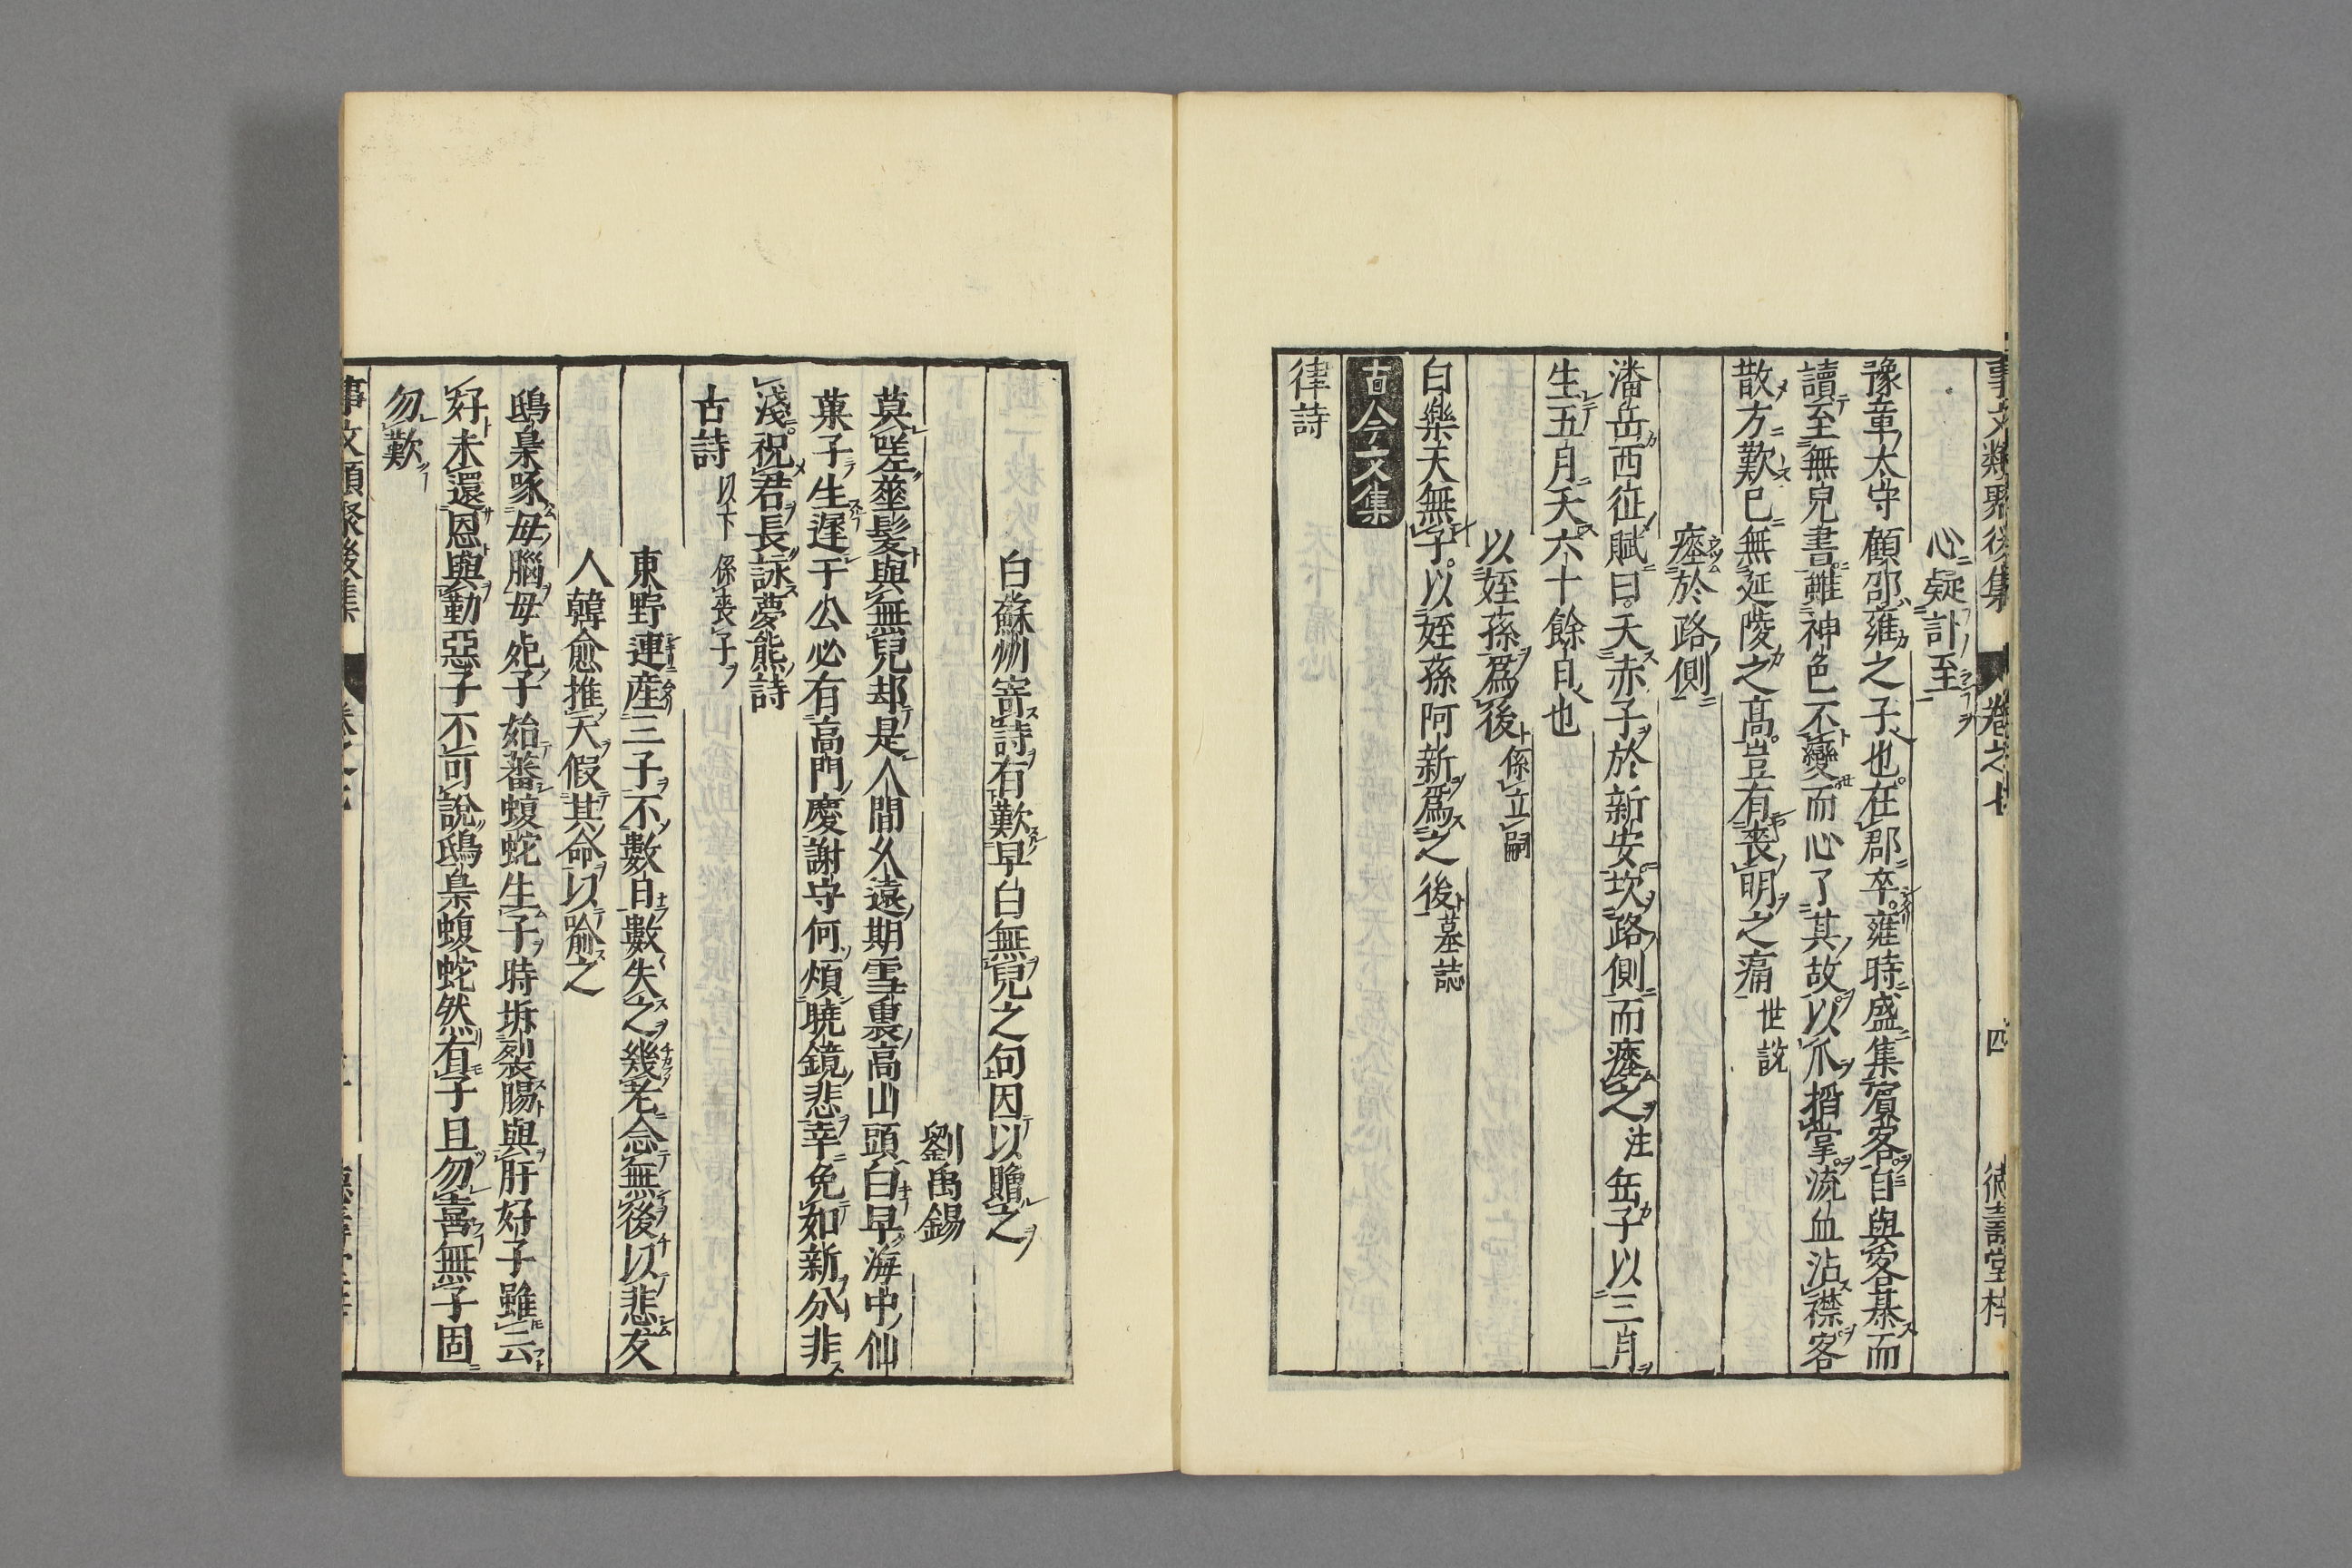 事文類聚後集 卷之七 四
心疑訃至
豫章太守顧邵雍之子也在郡卒雍時盛集賓客自與客棊而
讀至無兒書雖神色不變而心了其故以爪搯掌流血沾襟客
散方歎已無延陵之高豈有喪明之痛 世說
瘞於路側
潘岳西征賦曰夭赤子於新安坎路側而瘞之 注 岳子以三月
生五月夭六十餘日也
以姪孫爲後 係立嗣
白樂天無子以姪孫阿新爲之後 墓誌
古今文集
律詩
白蘇州寄詩有歎早白無兒之句因以贈之
劉禹錫
莫嗟華髮與無兒却是人間久遠期雪裏高山頭白早海中仙
菓子生遲于公必有高門慶謝守何煩曉鏡悲幸免如新分非
淺祝君長詠夢熊詩
古詩 以下係喪子
東野連産三子不數日數失之幾老念無後以悲友
人韓愈推天假其命以喻之
鴟梟啄母腦母死子始蕃蝮蛇生子時坼裂腸與肝好子雖云
好未還恩與勤惡子不可說鴟梟蝮蛇然有子且勿喜無子固
勿歎